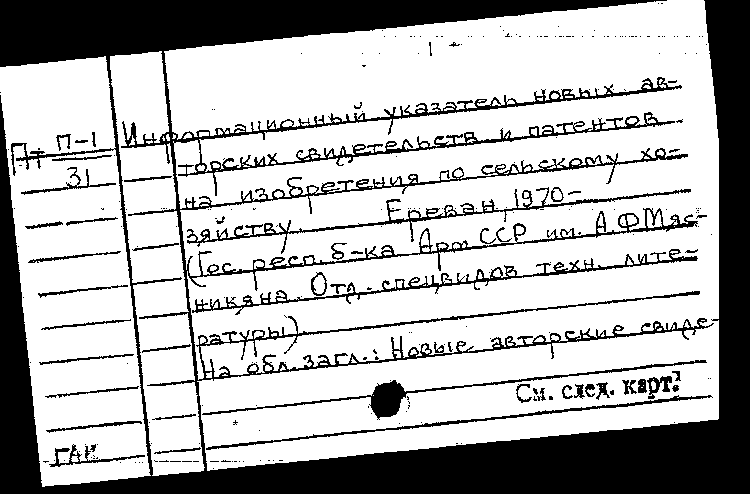 Пт П-1
31
Информационный указатель новых ав-
торских свидетельств и патентов
на изобретения по сельскому хо-
зяйству. Ереван, 1970-
(Гос. респ. б-ка Арм ССР им. А.Ф Мяс-
никяна. Отд. спецвидов техн. лите-
ратуры).
На обл. загл.: Новые авторские свиде-
См. след. карт.